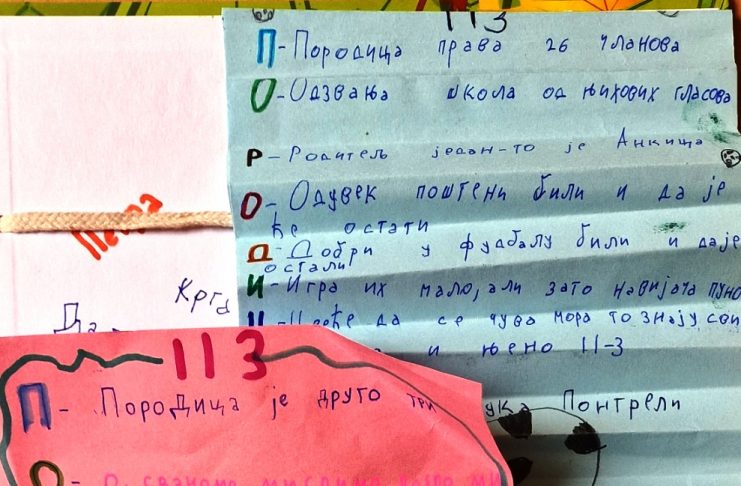 113
П-Породица права 26 чланова
О-Одзвања школа од њихових гласова
Р-Родитељ један-то је Анкица
О-Одувек поштени били и да је
ће остати
Д-Добри у фудбалу били и даје
остали
И-Игра их мало, али зато навијача пуно
да се чува мора то знају сви
и њено 11-3
Петра
Да
113
П- Породица је друго три Понтрели
О-